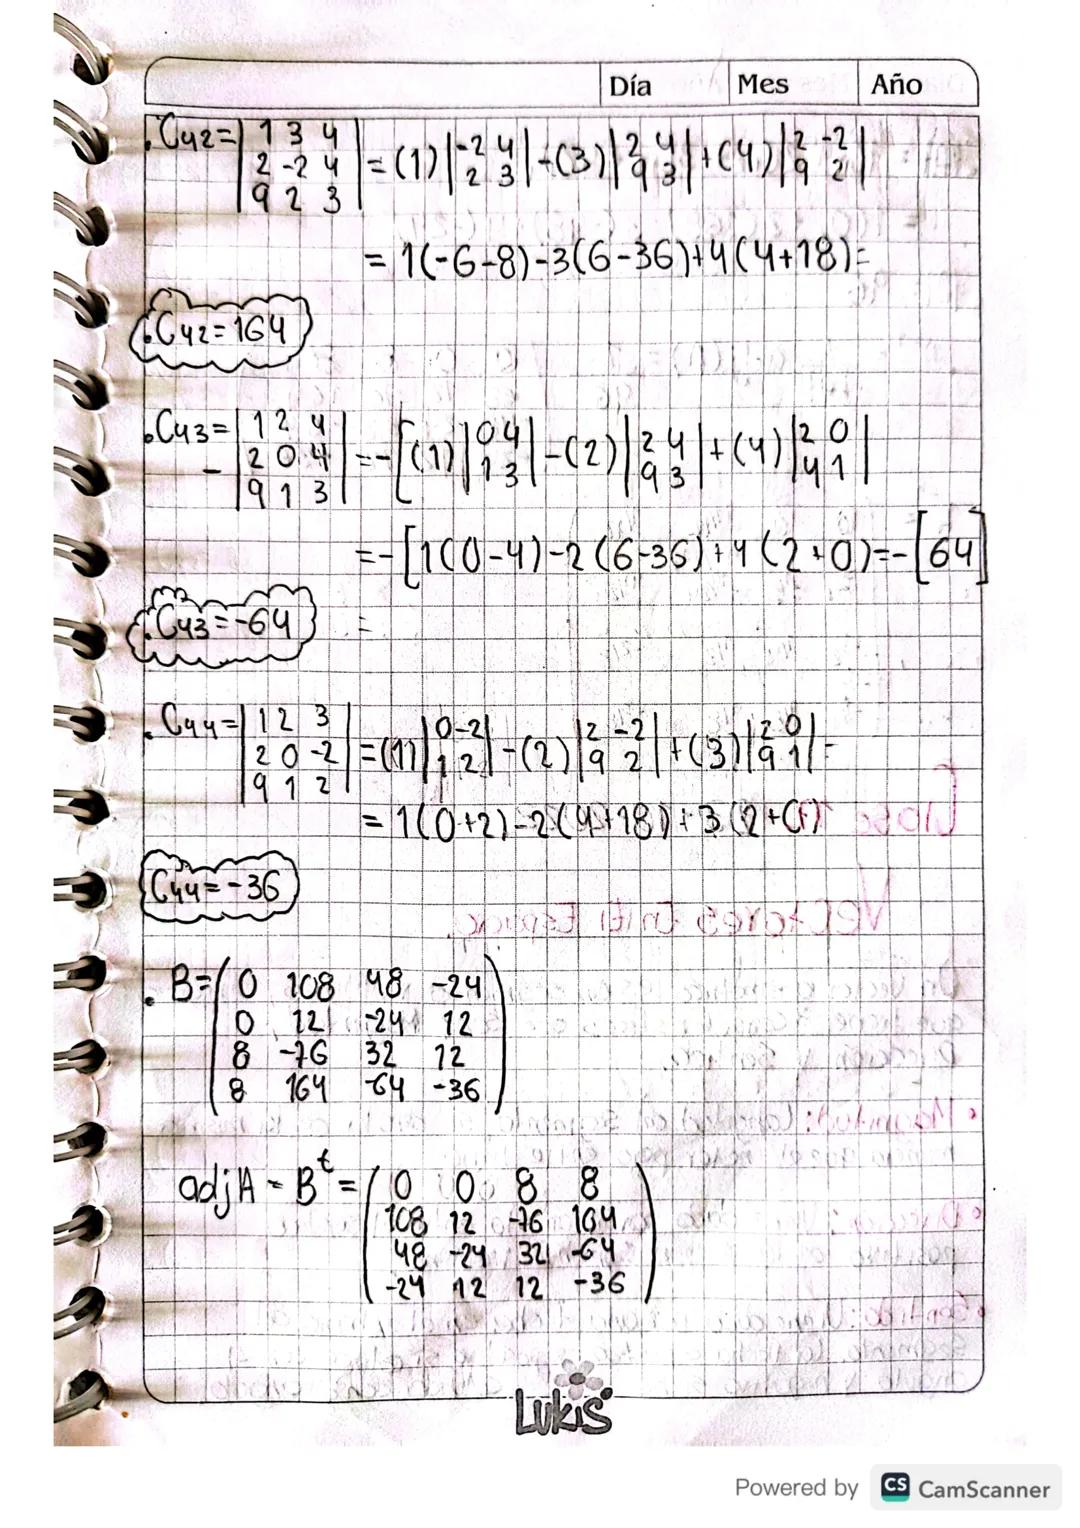 Día Mes Año
. C42 = | 1 3 4 | = (1) | -2 4 | - (3) | 2 4 | + (4) | 2 -2 |
| 2 -2 4 | | 2 3 | | 9 3 | | 9 2 |
| 9 2 3 |
= 1(-6-8)-3(6-36)+4(4+18)=
. C42 = 164
. C43 = | 1 2 4 | = - [ (1) | 0 4 | - (2) | 2 4 | + (4) | 2 0 |
- | 2 0 4 | | 1 3 | | 9 3 | | 4 1 |
| 9 1 3 |
= - [1(0-4)-2(6-36)+4(2+0) = - [64]
. C43 = -64 =
. C44 = | 1 2 3 | = (1) | 0 -2 | - (2) | 2 -2 | + (3) | 2 0 | =
| 2 0 -2 | | 1 2 | | 9 2 | | 9 1 |
| 9 1 2 |
= 1(0+2)-2(4+18)+3(2+0)
C44 = -36
. B = ( 0 108 48 -24 )
0 12 -24 12
8 -76 32 12
8 164 -64 -36
adj A = B^t = ( 0 0 8 8 )
108 12 -76 164
48 -24 32 -64
-24 12 12 -36
Lukis
Powered by CS CamScanner